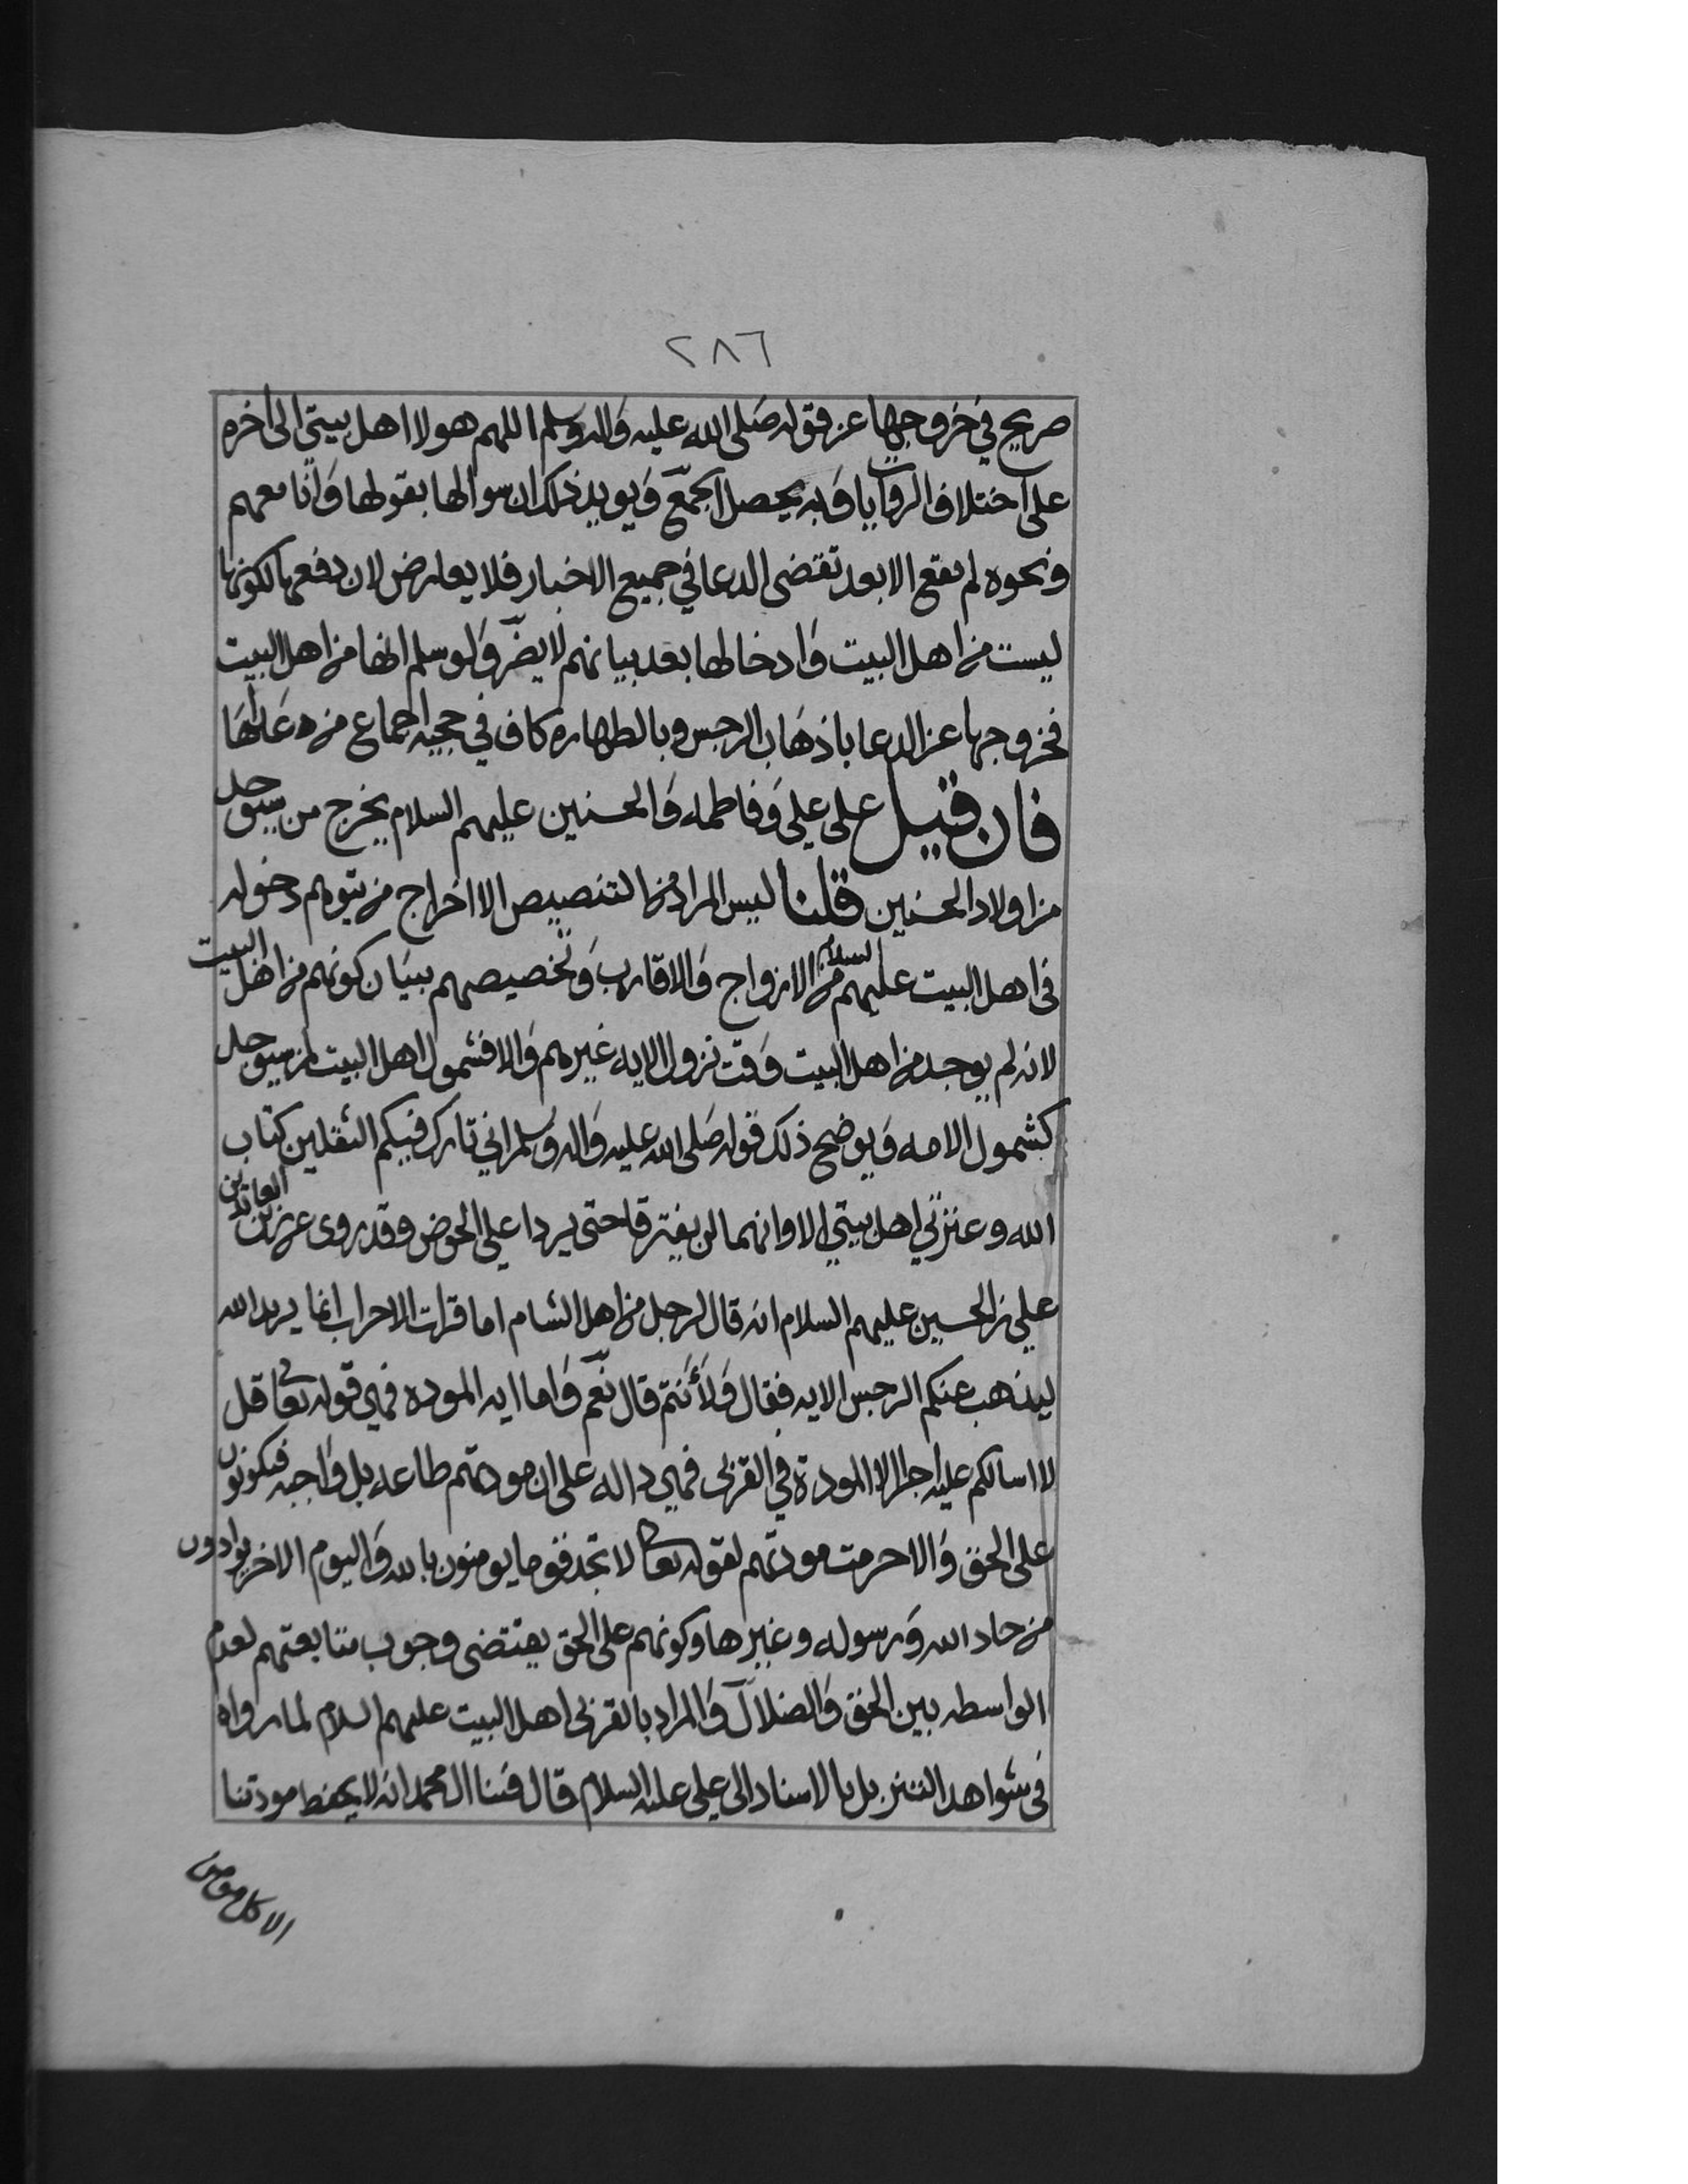 ٢٨٦
صريح في خروجها عن قوله صلى الله عليه واله وسلم اللهم هولا اهل بيتي الى اخره
على اختلاف الروايات وبه يحصل الجمع ويويد ذلك ان سوالها بقولها وانا معهم
ونحوه لم يقع الا بعد تقضى الدعا في جميع الاخبار فلا يعارض لان دفعها لكونها
ليست من اهل البيت وادخالها بعد بيانهم لا يضر ولو سلم انها من اهل البيت
فخروجها عن الدعا باذهاب الرجس وبالطهارة كاف في حجيه اجماع من عداها
فان قيل على علي وفاطمه والحسنين عليهم السلام يخرج من سيوجد
من اولاد الحسنين قلنا ليس المراد من التنصيص الا اخراج من يتوهم دخوله
في اهل البيت عليهم السلام من الازواج والاقارب وتخصيصهم ببيان كونهم من اهل البيت
لانه لم يوجد من اهل البيت وقت نزول الايه غيرهم والا فشمول اهل البيت لمن سيوجد
كشمول الامه ويوضح ذلك قوله صلى الله عليه واله وسلم اني تارك فيكم الثقلين كتاب
الله وعترتي اهل بيتي الا وانهما لن يفترقا حتى يردا علي الحوض وقد روى عن زين العابدين
علي بن الحسين عليهم السلام انه قال لرجل من اهل الشام اما قرات الاحزاب انما يريد الله
ليذهب عنكم الرجس الايه فقال ولأنتم قال نعم واما ايه الموده فهي قوله تعالى قل
لا اسالكم عليه اجرا الا المودة في القربى فهي داله على ان مودتهم طاعه بل واجبه فيكونون
على الحق والا حرمت مودتهم لقوله تعالى لا تجد قوما يومنون بالله واليوم الاخر يوادون
من حاد الله ورسوله وغيرها وكونهم على الحق يقتضى وجوب متابعتهم لعدم
الواسطه بين الحق والضلال والمراد بالقربى اهل البيت عليهم السلام لما رواه
في شواهد التنزيل بالاسناد الى علي عليه السلام قال فينا ال محمد انه لا يحفظ مودتنا
الا كل مومن